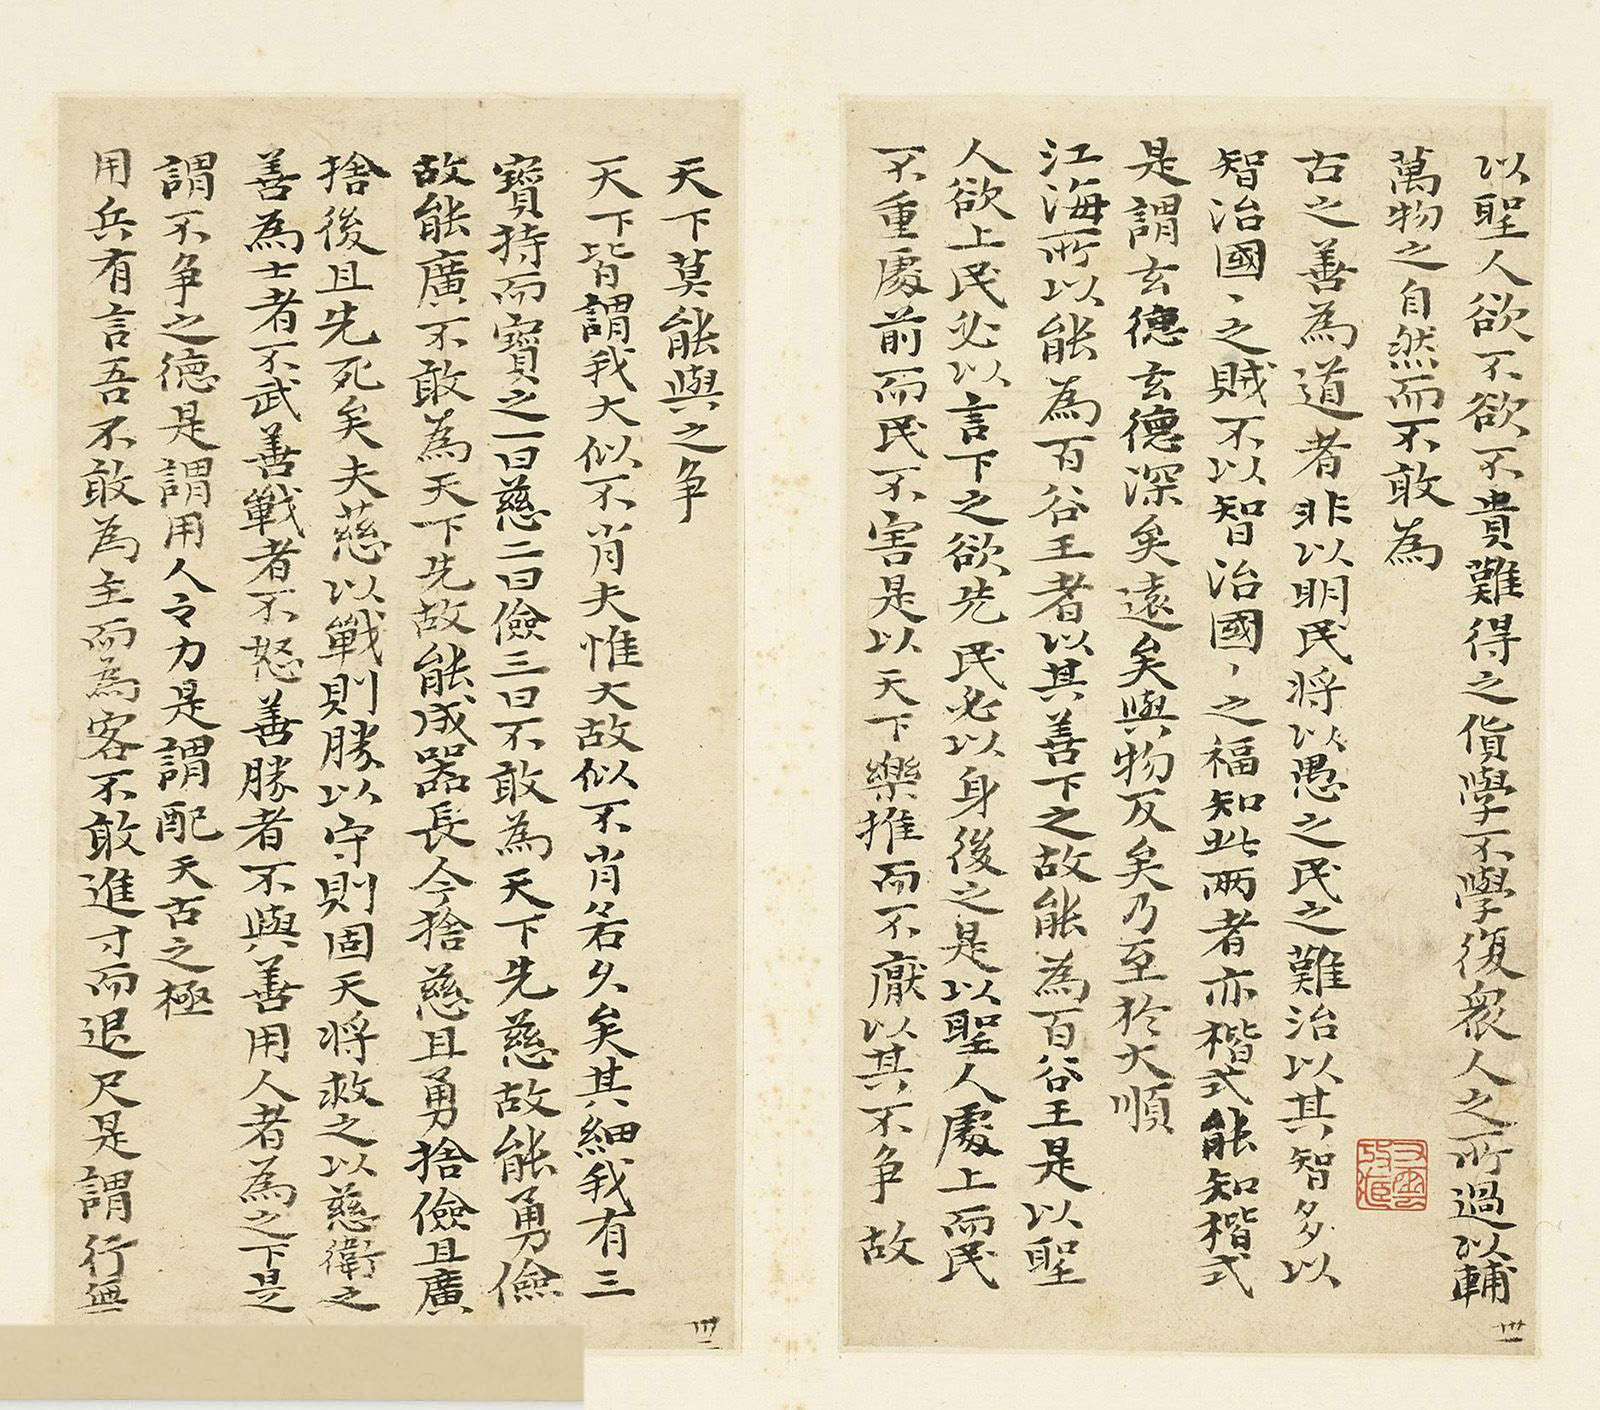 以聖人欲不欲不貴難得之貨學不學復衆人之所過以輔
萬物之自然而不敢為
古之善為道者非以明民將以愚之民之難治以其智多以
智治國〻之賊不以智治國〻之福知此兩者亦楷式能知楷式
是謂玄德玄德深矣遠矣與物反矣乃至於大順
江海所以能為百谷王者以其善下之故能為百谷王是以聖
人欲上民必以言下之欲先民必以身後之是以聖人處上而民
不重處前而民不害是以天下樂推而不厭以其不争故
卅一
天下莫能與之争
天下皆謂我大似不肖夫惟大故似不肖若久矣其細我有三
寶持而寶之一曰慈二曰儉三曰不敢為天下先慈故能勇儉
故能廣不敢為天下先故能成器長今捨慈且勇捨儉且廣
捨後且先死矣夫慈以戰則勝以守則固天將救之以慈衛之
善為士者不武善戰者不怒善勝者不與善用人者為之下是
謂不争之德是謂用人之力是謂配天古之極
用兵有言吾不敢為主而為客不敢進寸而退尺是謂行無
卅一